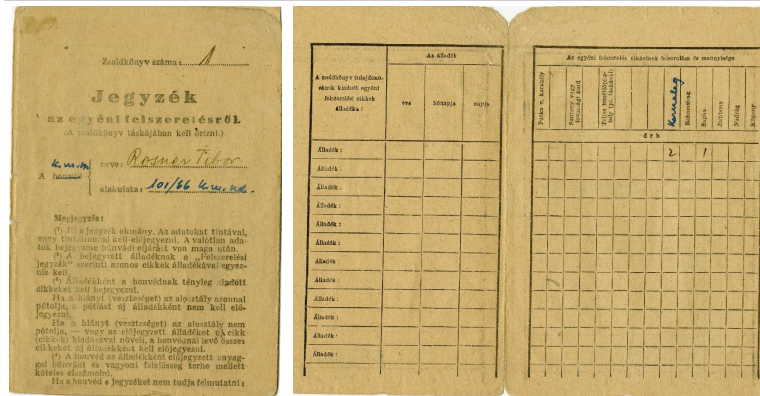 Zsoldkönyv száma: 1
Jegyzék
az egyéni felszerelésről.
(A zsoldkönyv táskájában kell őrizni.)
A honvéd
neve: Rosner Tibor
alakulata: 101/66
Megjegyzés:
(¹) Ez a jegyzék okmány. Az adatokat tintával,
vagy tintaironnal kell előjegyezni. A valótlan ada-
tok bejegyzése bűnvádi eljárást von maga után.
(²) A bejegyzett álladéknak a „Felszerelési
jegyzék” szerinti azonos cikkek álladékával egyez-
nie kell.
(³) Álladékként a honvédnak tényleg kiadott
cikkeket kell bejegyezni.
Ha a hiányt (veszteséget) az alosztály azonnal
pótolja, a pótlást új álladékként nem kell elő-
jegyezni.
Ha a hiányt (veszteséget) az alosztály nem
pótolja, — vagy az előjegyzett álladékot új cikk
(cikkek) kiadásával növeli, a honvédnál levő összes
cikkeket új álladékként kell előjegyezni.
(⁴) A honvéd az álladékként előjegyzett anyag-
gal bűnvádi és vagyoni felelősség terhe mellett
köteles elszámolni.
Ha a honvéd a jegyzéket nem tudja felmutatni:
A zsoldkönyv tulajdono-
sának kiadott egyéni
felszerelési cikkek
álladéka:
Az álladék
éve
hónapja
napja
Álladék:
Álladék:
Álladék:
Álladék:
Álladék:
Álladék:
Álladék:
Álladék:
Álladék:
Álladék:
Álladék:
Álladék:
Az egyéni felszerelési cikkeinek felsorolása és mennyisége
Puska v. karabély
Szurony vagy
lovassági kard
Bakancs
Sapka
Zubbony
Nadrág
Köpeny
drb
2
1